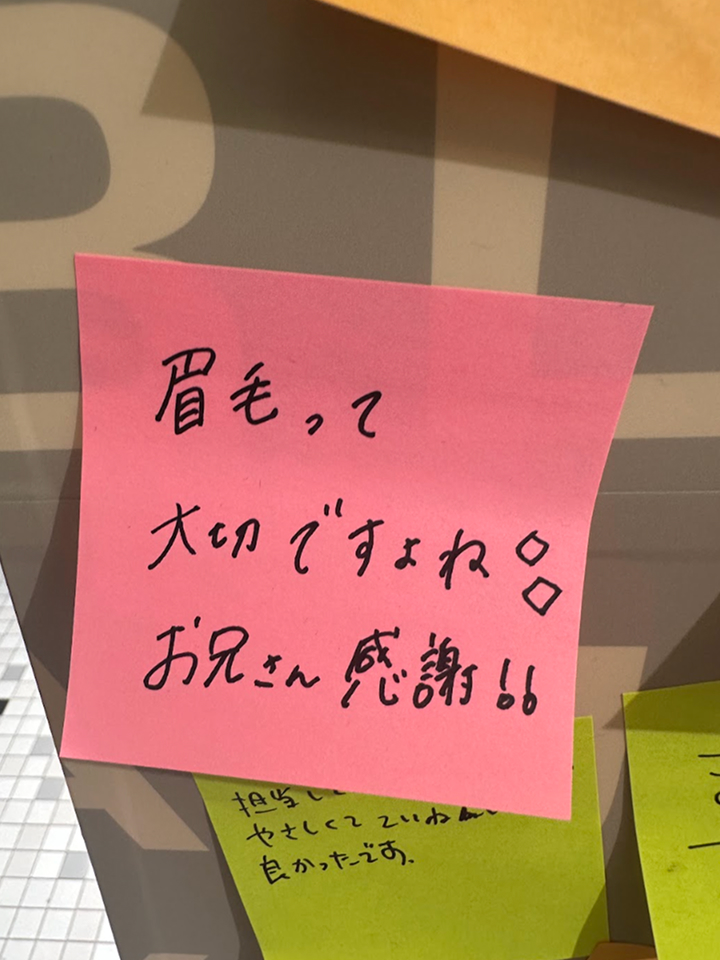 眉毛って
大切ですよね◇◇
お兄さん 感謝!!
担当し
やさしくて ていね
良かったです。